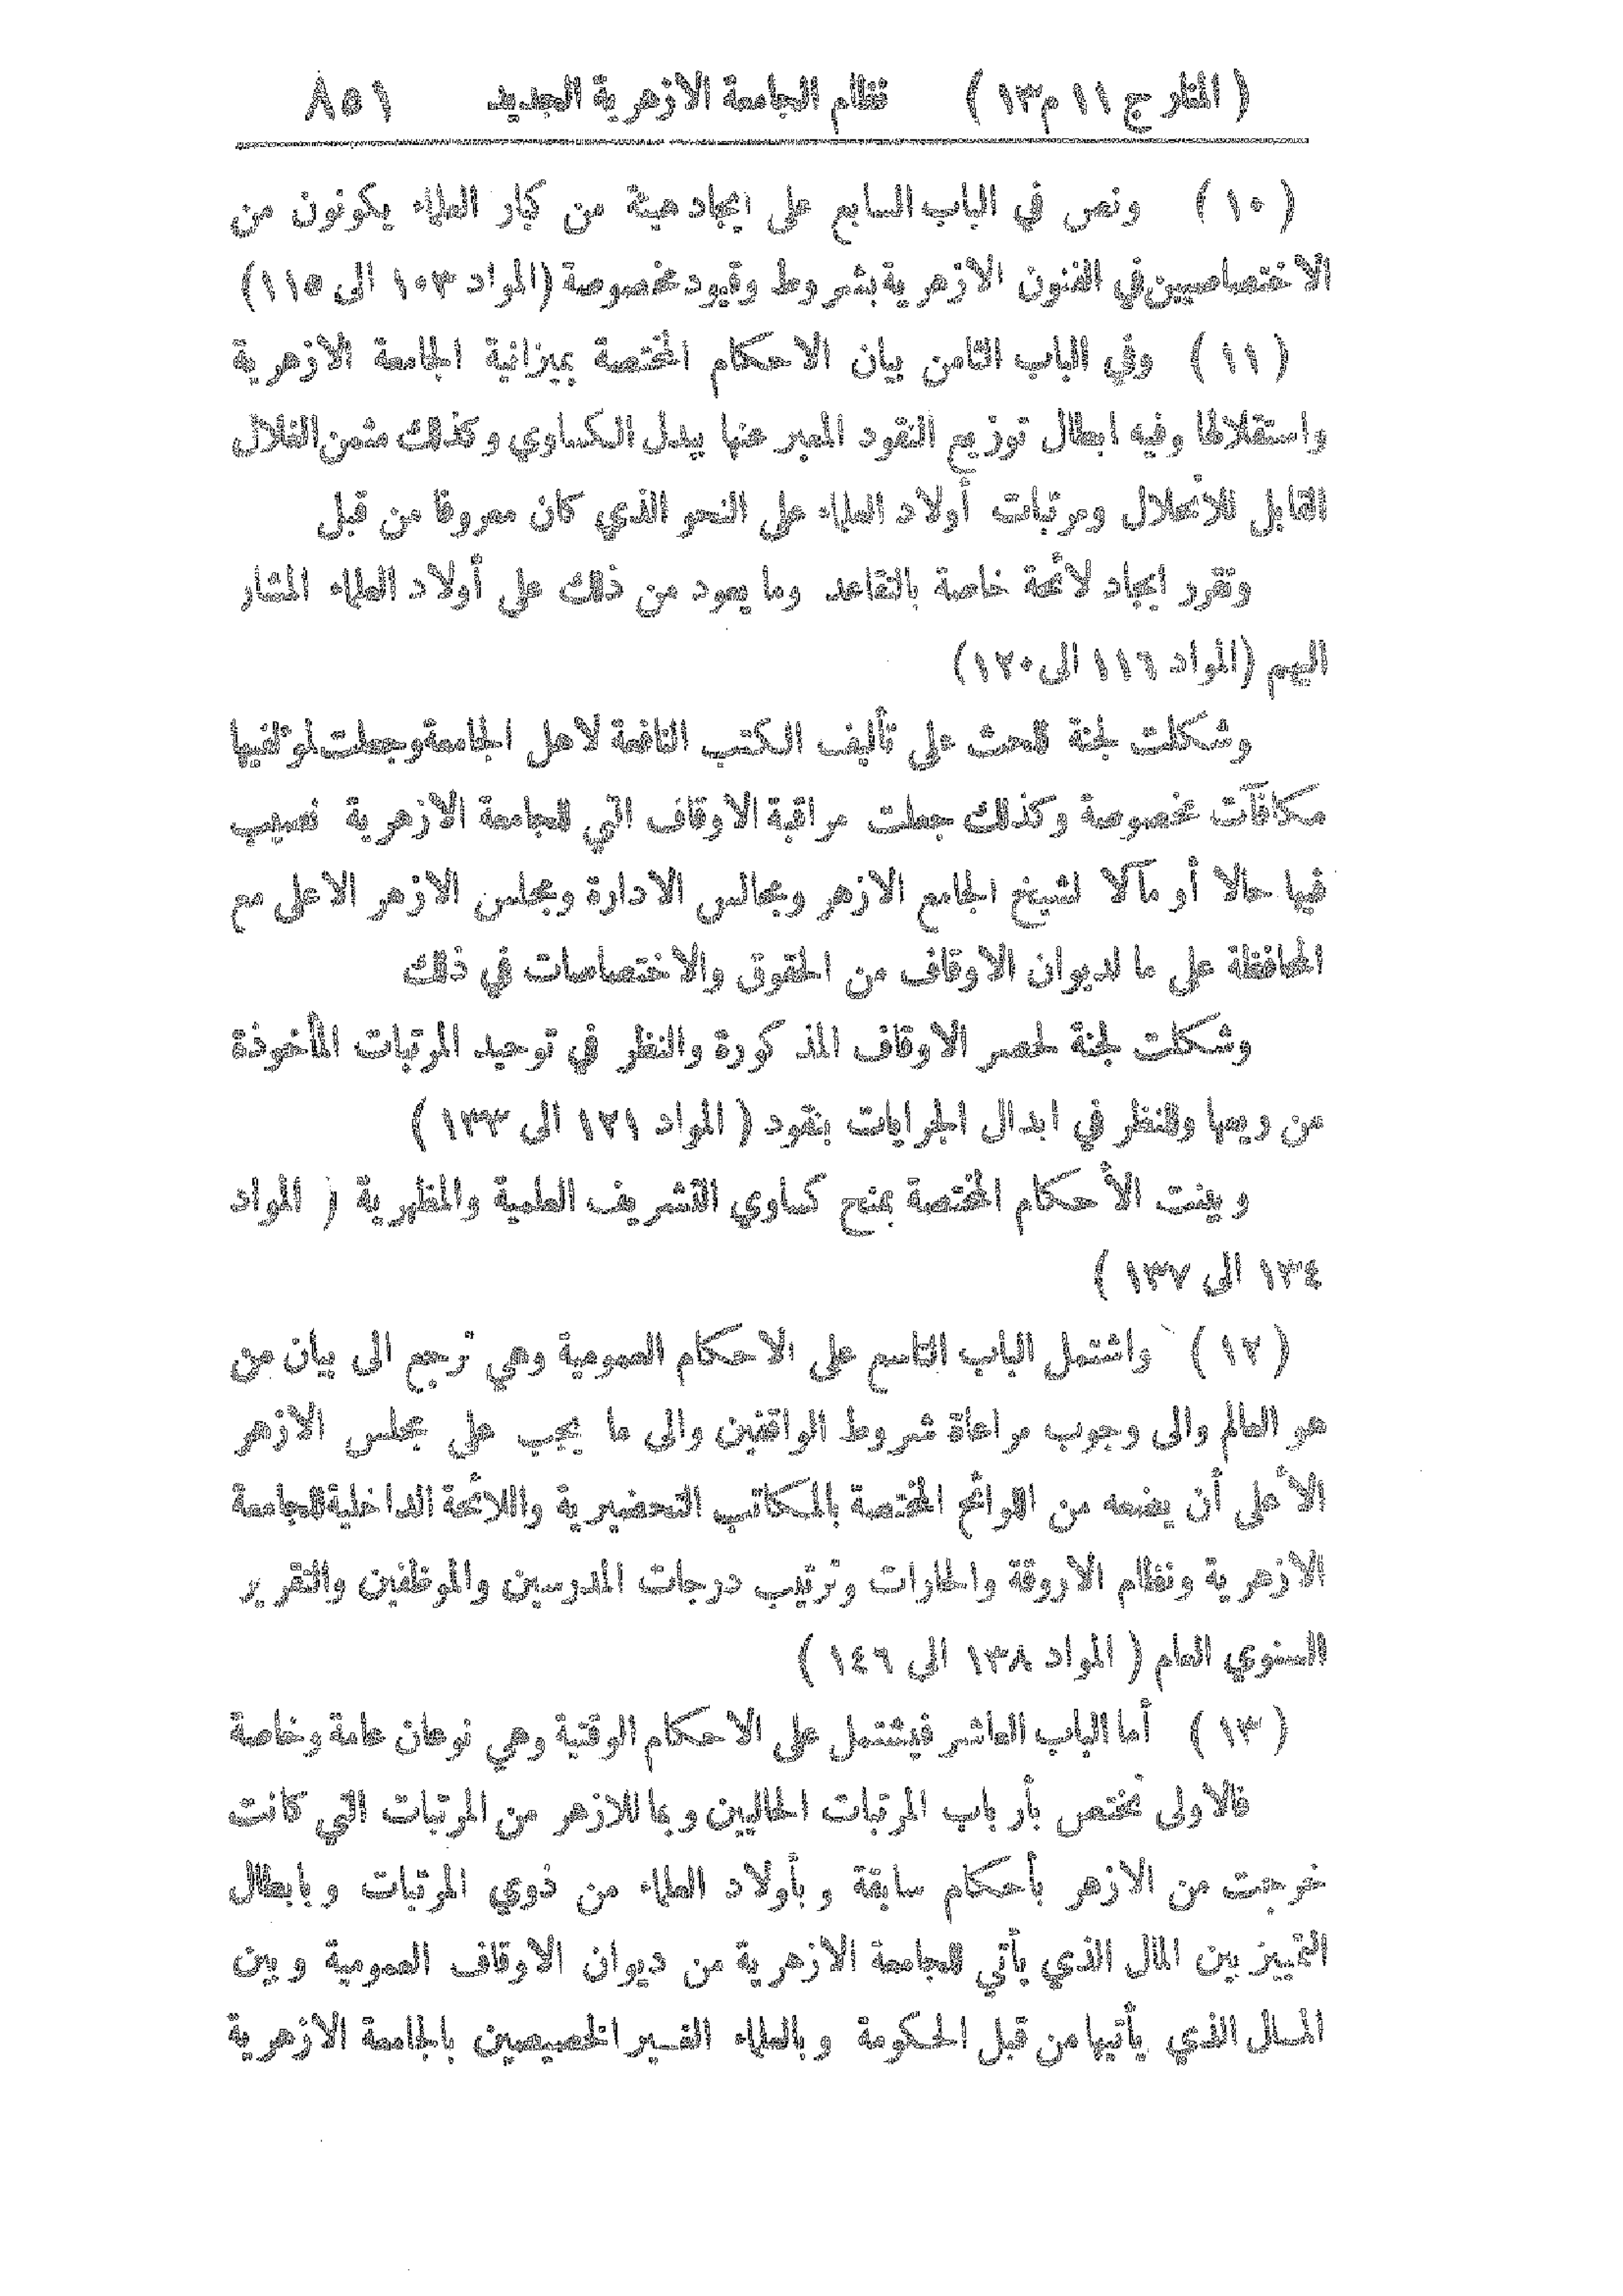 ( المنارج ١١ م١٣ ) نظام الجامعة الازهرية الجديد ٨٥١
( ١٠ ) ونص في الباب السابع على ايجاد هيئة من كبار العلماء يكونون من
الاختصاصيين في الفنون الازهرية بشروط وقيود مخصوصة (المواد ١٠٣ الى ١١٥)
( ١١ ) وفي الباب الثامن بيان الاحكام المختصة بميزانية الجامعة الازهرية
واستقلالها وفيه ابطال توزيع النقود المعبر عنها ببدل الكساوي وكذلك مثمن الغلال
القابل للانحلال ومرتبات أولاد العلماء على النحو الذي كان معروفا من قبل
وتقرر ايجاد لائحة خاصة بالتقاعد وما يعود من ذلك على أولاد العلماء المشار
اليهم (المواد ١١٦ الى ١٢٠)
وشكلت لجنة للحث على تأليف الكتب النافعة لاهل الجامعة وجعلت لمؤلفيها
مكافآت مخصوصة وكذلك جعلت مراقبة الاوقاف التي للجامعة الازهرية نصيب
فيها حالا أو مآلا لشيخ الجامع الازهر ومجالس الادارة ومجلس الازهر الاعلى مع
المحافظة على ما لديوان الاوقاف من الحقوق والاختصاصات في ذلك
وشكلت لجنة لحصر الاوقاف المذكورة والنظر في توحيد المرتبات المأخوذة
من ريعها وللنظر في ابدال الجرايات بنقود ( المواد ١٢١ الى ١٣٣ )
وبينت الأحكام المختصة بمنح كساوي التشريف العلمية والمظهرية ( المواد
١٣٤ الى ١٣٧ )
( ١٢ ) واشتمل الباب التاسع على الاحكام العمومية وهي ترجع الى بيان من
هو العالم والى وجوب مراعاة شروط الواقفين والى ما يجب على مجلس الازهر
الأعلى أن يضعه من اللوائح المختصة بالمكاتب التحضيرية واللائحة الداخلية للجامعة
الازهرية ونظام الاروقة والحارات وترتيب درجات المدرسين والموظفين والتقرير
السنوي العام ( المواد ١٣٨ الى ١٤٦ )
( ١٣ ) أما الباب العاشر فيشتمل على الاحكام الوقتية وهي نوعان عامة وخاصة
فالاولى تختص بأرباب المرتبات الحاليين وبما للازهر من المرتبات التي كانت
خرجت من الازهر بأحكام سابقة وبأولاد العلماء من ذوي المرتبات وبابطال
التمييز بين المال الذي يأتي للجامعة الازهرية من ديوان الاوقاف العمومية وبين
المال الذي يأتيها من قبل الحكومة وبالعلماء الغير الخصيصين بالجامعة الازهرية